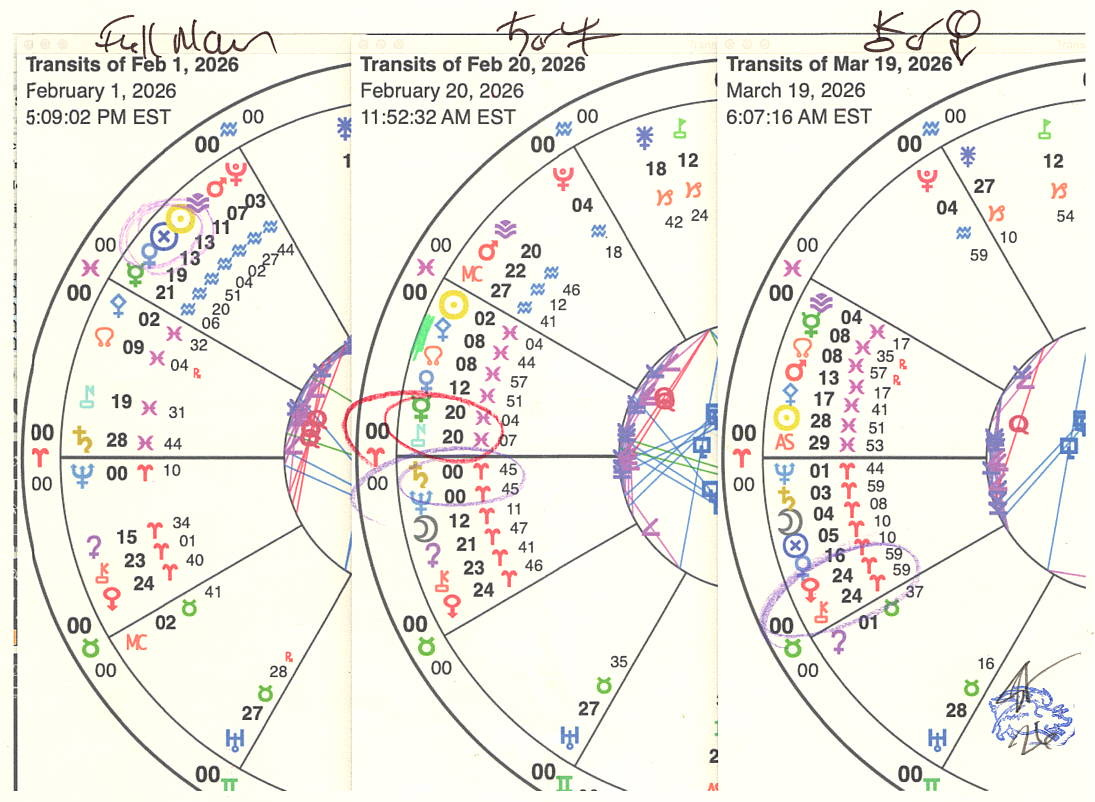 Full Moon
♄ ☌ ♆
Transits of Feb 1, 2026
February 1, 2026
5:09:02 PM EST
00 ♒ 00
03 ♒ 44
07 ♒ 27
11 ♒ 02
13 ♒ 04
13 ♒ 51
19 ♒ 20
21 ♒ 06
00 ♓ 00
02 ♓ 32
☊ 09 ♓ 04 ℞
19 ♓ 31
♄ 28 ♓ 44
00 ♈ 00
♆ 00 ♈ 10
15 ♈ 34
23 ♈ 01
24 ♈ 40
00 ♉ 00
MC 02 ♉ 41
♅ 27 ♉ 28 ℞
00 ♊
Transits of Feb 20, 2026
February 20, 2026
11:52:32 AM EST
00 ♒ 00
18 ♑ 42
12 ♑ 24
04 ♒ 18
20 ♒ 46
♂ 22 ♒ 12
MC 27 ♒ 41
00 ♓ 00
☉ 02 ♓ 04
08 ♓ 44
☊ 08 ♓ 57
♀ 12 ♓ 51
☿ 20 ♓ 04
20 ♓ 07
00 ♈ 00
♄ 00 ♈ 45
♆ 00 ♈ 45
☽ 12 ♈ 11
21 ♈ 47
23 ♈ 41
24 ♈ 46
00 ♉ 00
♅ 27 ♉ 35
00 ♊
Transits of Mar 19, 2026
March 19, 2026
6:07:16 AM EST
00 ♒ 00
27 ♑ 10
12 ♑ 54
04 ♒ 59
00 ♓ 00
04 ♓ 17
☿ 08 ♓ 35 ℞
☊ 08 ♓ 57 ℞
♂ 13 ♓ 17
17 ♓ 41
☉ 28 ♓ 51
AS 29 ♓ 53
00 ♈ 00
♆ 01 ♈ 44
♄ 03 ♈ 59
☽ 04 ♈ 08
05 ♈ 10
♀ 16 ♈ 10
24 ♈ 59
24 ♈ 59
00 ♉ 00
01 ♉ 37
♅ 28 ♉ 16
00 ♊